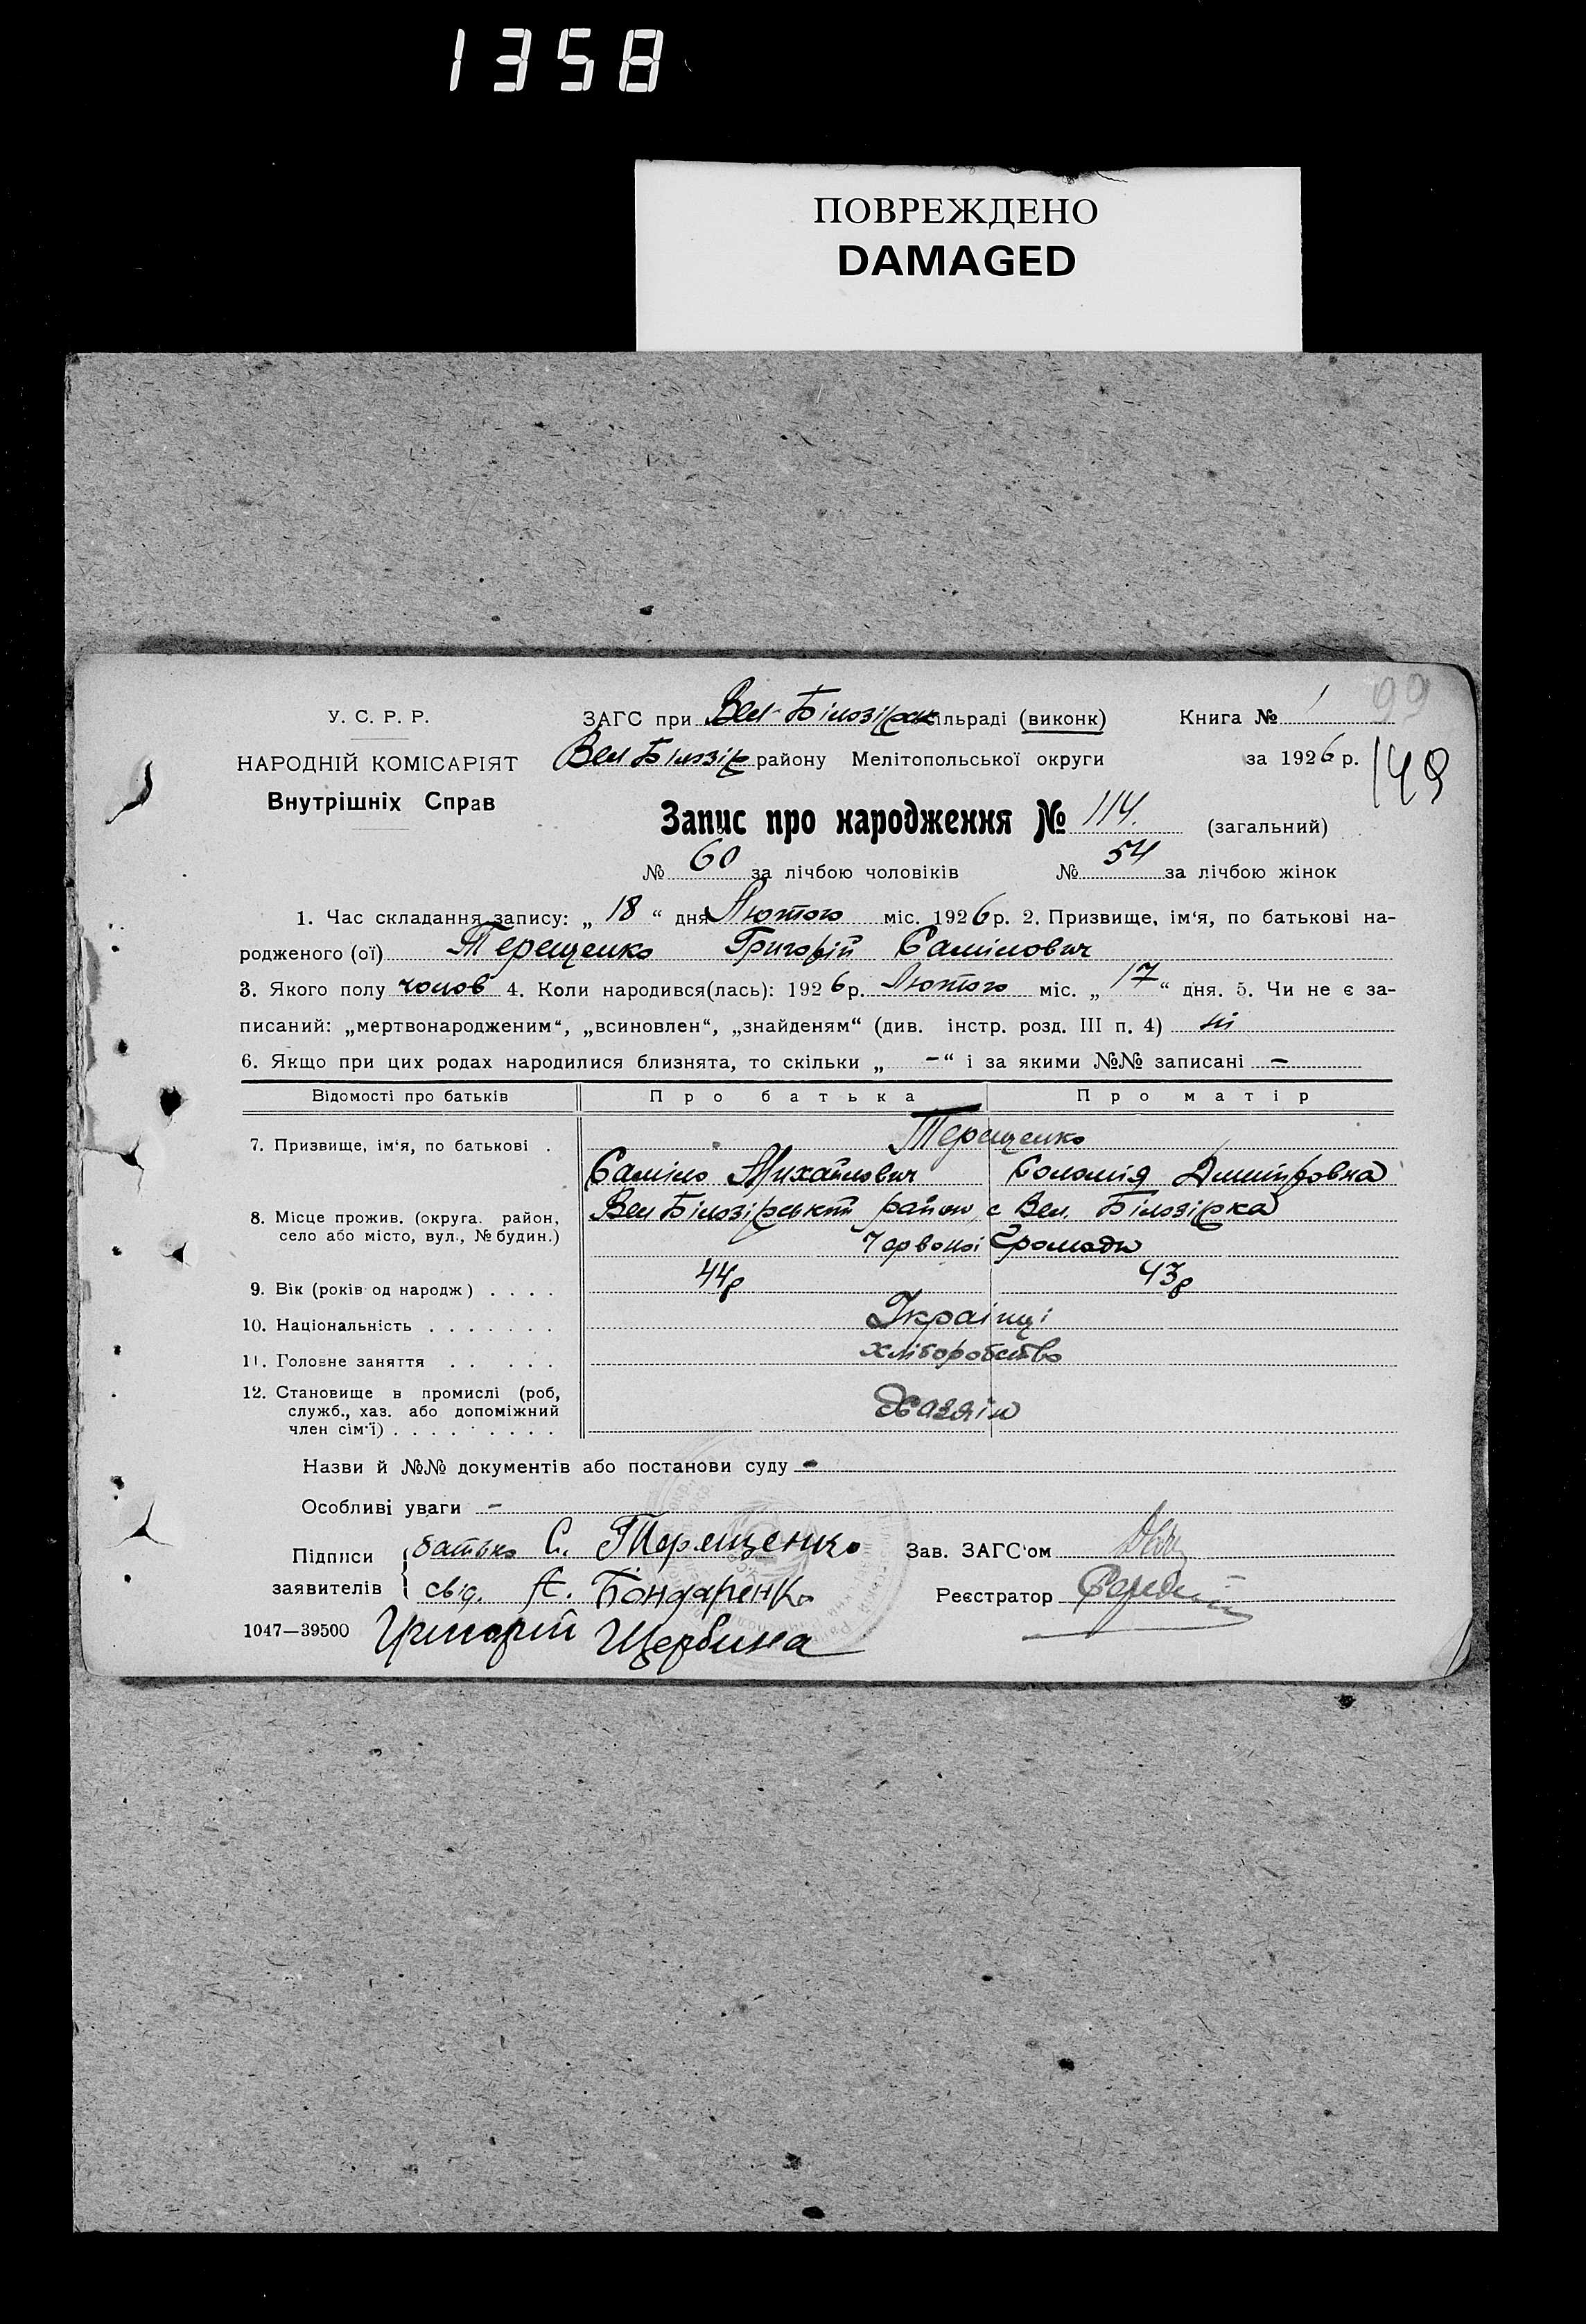 1358
ПОВРЕЖДЕНО
DAMAGED
99
У. С. Р. Р.
ЗАГС при Вел-Білозірск сільраді (виконк)
Книга № 1
НАРОДНІЙ КОМІСАРІЯТ
Вел Білозір району Мелітопольської округи
за 1926 р.
149
Внутрішніх Справ
Запис про народження № 114. (загальний)
№ 60 за лічбою чоловіків № 54 за лічбою жінок
1. Час складання запису: „ 18 “ дня Лютого міс. 1926 р. 2. Призвище, ім‘я, по батькові на-
родженого (ої) Терещенко Григорій Самілович
3. Якого полу чолов 4. Коли народився(лась): 1926 р. Лютого міс. „ 17 “ дня. 5. Чи не є за-
писаний: „мертвонародженим“, „всиновлен“, „знайденям“ (див. інстр. розд. III п. 4) ні
6. Якщо при цих родах народилися близнята, то скільки „ - “ і за якими №№ записані -
Відомості про батьків Про батька Про матір
7. Призвище, ім‘я, по батькові . Терещенко
Саміло Михайлович Соломія Дмитровна
8. Місце прожив. (округа. район, село або місто, вул., № будин.) Вел Білозірський район, с Вел. Білозірка
Червоної Громади
9. Вік (років од народж) . . . . 44р 43р
10. Національність . . . . . . . Українці
11. Головне заняття . . . . . хліборобство
12. Становище в промислі (роб,
служб., хаз. або допоміжний
член сім‘ї) . . . . . . . . . Хазяїн
Назви й №№ документів або постанови суду -
Особливі уваги -
Підписи заявителів батько С. Терещенко
Зав. ЗАГС‘ом
свід. А. Бондаренко
Реєстратор
1047—39500 Григорій Щербина